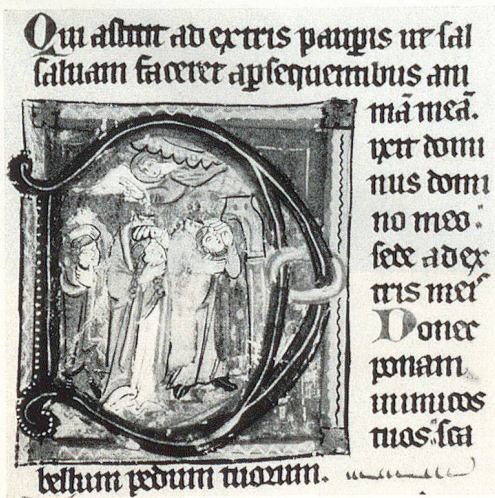 Qui astitit ad extris paup̱is ut sal
saluam faceret ap̱sequentibus ani
mā meā.
Dixit domi
nus domi
no meo:
sede ad ex
tris meis
Donec
ponam
inimicos
tuos: sca
bellum pedum tuorum.